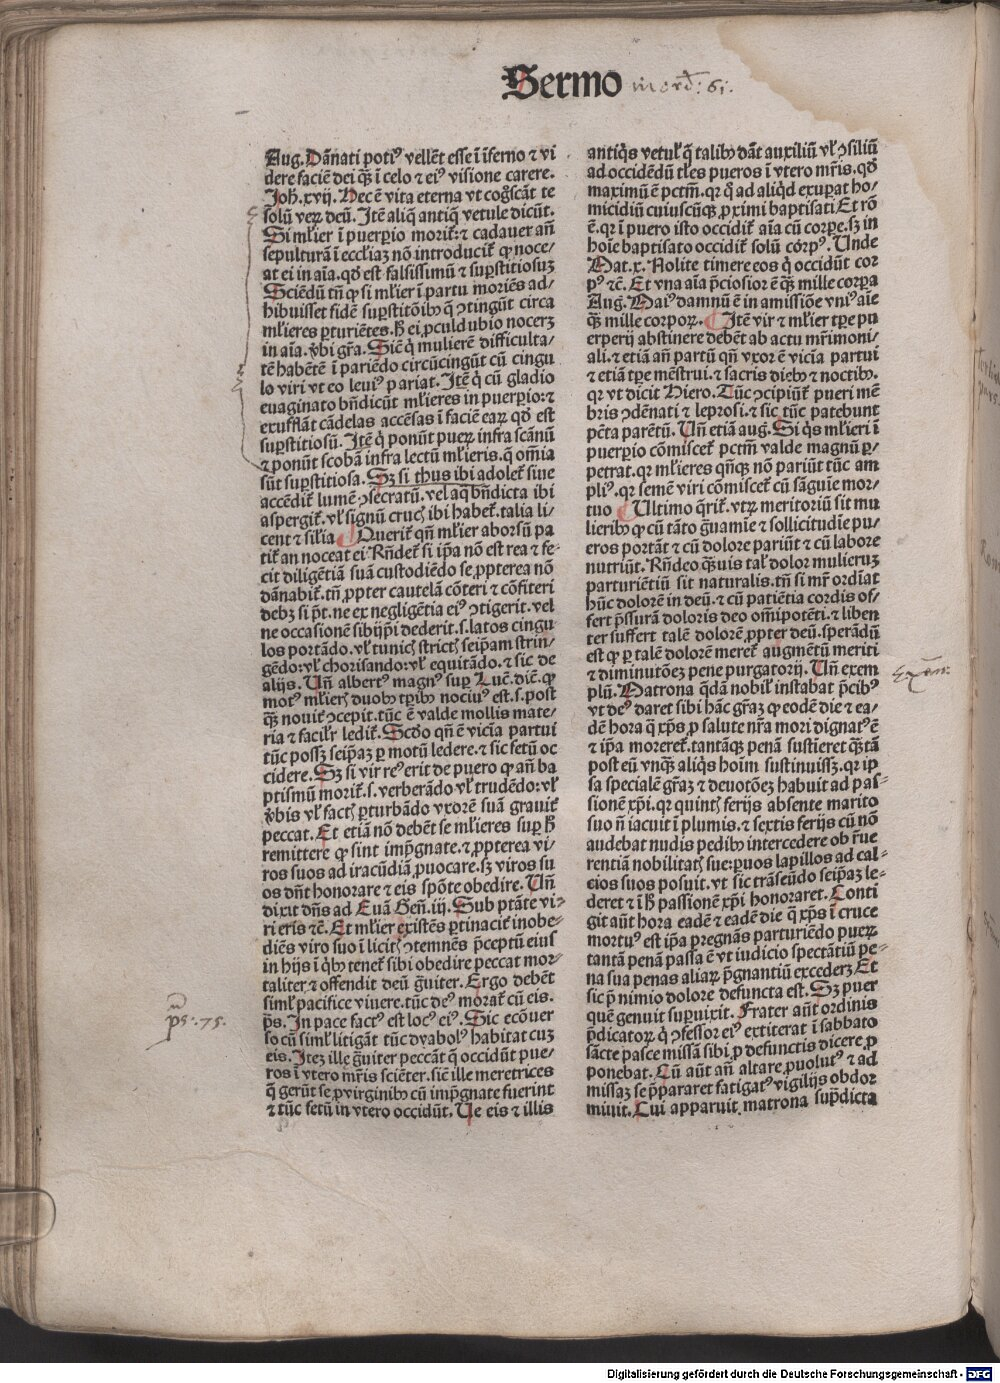 Sermo
Aug. Dãnati poti⁹ vellẽt esse ĩ ĩferno ⁊ vi
dere faciẽ dei q̃ꝫ ĩ celo ⁊ ei⁹ visione carere.
Joh̃. xvij. Hec ẽ vita eterna vt cog̃scãt te
solũ veꝝ deũ. Jtẽ aliq̃ antiq̃ vetule dicũt.
Si ml̃ier ĩ puerꝑio morit᷑: ⁊ cadauer añ
sepulturã ĩ eccl̃iaꝫ nõ introducit᷑ ꝙ noce⸗
at ei in aĩa. qd̃ est falsissimũ ⁊ suꝑstitiosuꝫ
Sciẽdũ tñ ꝙ si ml̃ier ĩ partu moriẽs ad⸗
hibuisset fidẽ suꝑstitõibꝫ q̃ ↄtingũt circa
ml̃ieres ꝑturiẽtes. h̃ ei ꝓculdubio noceꝫ
in aĩa. v̾bi gr̃a. Sic̃ q̇ mulierẽ difficulta⸗
tẽ habẽtẽ ĩ pariẽdo circũcingũt cũ cingu
lo viri vt eo leui⁹ pariat. Jtẽ q̇ cũ gladio
euaginato bñdicũt ml̃ieres in puerꝑio: ⁊
exufflãt cãdelas accẽsas ĩ faciẽ eaꝝ qd̃ est
suꝑstitiosũ. Jtẽ q̇ ponũt pueꝝ infra scãnũ
⁊ ponũt scobã infra lectũ ml̃ieris. q̃ om̃ia
sũt suꝑstitiosa. Sꝫ si thus ibi adolet᷑ siue
accẽdit᷑ lumẽ ↄsecratũ. vel aq̃ bñdicta ibi
aspergit᷑. vl̃ signũ crucꝭ ibi habet᷑. talia li⸗
cent ⁊ sil̃ia. ¶ Querit᷑ qñ ml̃ier aborsũ pa
tit᷑ an noceat ei Rñdet᷑ si ip̃a nõ est rea ⁊ fe⸗
cit diligẽtiã suã custodiẽdo se ꝓpterea nõ
dãnabit᷑. tñ ꝓpter cautelã cõteri ⁊ cõfiteri
debꝫ si p̃t. ne ex negligẽtia ei⁹ ↄtigerit. vel
ne occasionẽ sibijp̃i dederit. s. latos cingu
los portãdo. vl̃ tunicꝭ strictꝭ seip̃am strin⸗
gẽdo: vl̃ chorisando: vl̃ equitãdo. ⁊ sic de
alijs. Uñ albert⁹ magn⁹ suꝑ Luc̃. dic̃. ꝙ
mot⁹ ml̃ierꝭ duobꝫ tꝑibꝫ nociu⁹ est. s. post
q̃ꝫ nouit ↄcepit. tũc ẽ valde mollis mate⸗
ria ⁊ facil̃r ledit᷑. Scd̃o qñ ẽ vicĩa partui
tũc possꝫ seip̃aꝫ ꝑ motũ ledere. ⁊ sic fetũ oc
cidere. Sꝫ si vir re⁹ erit de puero ꝙ añ ba
ptismũ morit᷑. s. verberãdo vl̃ trudẽdo: vl̃
v̾bis vl̃ factꝭ ꝑturbãdo vxorẽ suã grauit᷑
peccat. Et etiã nõ debẽt se ml̃ieres suꝑ h̃
remittere ꝙ sint imp̃gnate. ⁊ ꝓpterea vi⸗
ros suos ad iracũdiã ꝓuocare. sꝫ viros su
os dñt honorare ⁊ eis spõte obedire. Uñ
dixit dñs ad Euã Geñ. iij. Sub ptãte vi⸗
ri eris ⁊c̃. Et ml̃ier existẽs ꝑtinacit᷑ inobe⸗
diẽs viro suo ĩ licitꝭ ↄtemnẽs p̃ceptũ eius
in hijs ĩ qb̾ꝫ tenet᷑ sibi obedire peccat mor⸗
taliter ⁊ offendit deũ g̃uiter. Ergo debẽt
siml̃ pacifice viuere. tũc de⁹ morat᷑ cũ eis.
p̃s. Jn pace fact⁹ est loc⁹ ei⁹. Sic ecõuer
so cũ siml̃ litigãt tũc dyabol⁹ habitat cuꝫ
eis. Jteꝫ ille g̃uiter peccãt q̃ occidũt pue⸗
ros ĩ vtero mr̃is sciẽter. sic̃ ille meretrices
q̃ gerũt se ꝓ virginibꝫ cũ imp̃gnate fuerint
⁊ tũc fetũ in vtero occidũt. Ue eis ⁊ illis
antiq̃s vetul̃ q̃ talibꝫ dãt auxiliũ vl̃ ↄsiliũ
ad occidẽdũ tl̃es pueros ĩ vtero mr̃is. qd̃
maximũ ẽ pctm̃. qr q̃ ad aliq̃d exuꝑat ho⸗
micidiũ cuiuscũqꝫ ꝓximi baptisati Et rõ
ẽ. qr ĩ puero isto occidit᷑ aĩa cũ corꝑe. sꝫ in
hoĩe baptisato occidit᷑ solũ corp⁹. Unde
Mat. x. Nolite timere eos q̇ occidũt cor
p⁹ ⁊c̃. Et vna aĩa p̃ciosior ẽ q̃ꝫ mille corꝑa
Aug. Mai⁹ damnũ ẽ in amissiõe vni⁹ aĩe
q̃ꝫ mille corpoꝝ. ¶ Jtẽ vir ⁊ ml̃ier tꝑe pu
erperij abstinere debẽt ab actu mr̃imoni⸗
ali. ⁊ etiã añ partũ qñ vxor ẽ vicĩa partui
⁊ etiã tꝑe mẽstrui. ⁊ sacris diebꝫ ⁊ noctibꝫ.
qr vt dicit Hiero. Tũc ↄcipiũt᷑ pueri mẽ
bris ↄdẽnati ⁊ leprosi. ⁊ sic tũc patebunt
pctã parẽtũ. Uñ etiã aug. Si q̃s ml̃ieri ĩ
puerꝑio cõmiscet᷑ pctm̃ valde magnũ ꝑ⸗
petrat. qr ml̃ieres qñqꝫ nõ pariũt tũc am
pli⁹. qr semẽ viri cõmiscet᷑ cũ sãguĩe mor⸗
tuo ¶ Ultimo q̃rit᷑. vtꝝ meritoriũ sit mu
lieribꝫ ꝙ cũ tãto g̃uamĩe ⁊ sollicitudĩe pu⸗
eros portãt ⁊ cũ dolore pariũt ⁊ cũ labore
nutriũt. Rñdeo q̃ꝫuis tal̃ dolor mulieruꝫ
parturiẽtiũ sit naturalis. tñ si mr̃ ordĩat
hũc dolorẽ in deũ. ⁊ cũ patiẽtia cordis of⸗
fert p̃ssurã doloris deo om̃ipotẽti. ⁊ liben
ter suffert talẽ dolorẽ ꝓpter deũ. sperãdũ
est ꝙ ꝑ talẽ dolorẽ meret᷑ augmẽtũ meriti
⁊ diminutõeꝫ pene purgatorij. Uñ exem
plũ. Matrona q̃dã nobil᷑ instabat p̃cib⁹
vt de⁹ daret sibi hãc gr̃aꝫ ꝙ eodẽ die ⁊ ea⸗
dẽ hora q̃ xp̃s ꝓ salute nr̃a mori dignat⁹ ẽ
⁊ ip̃a moreret᷑. tantãqꝫ penã sustieret q̃ꝫtã
post eũ vnq̃ꝫ aliq̃s hoĩm sustinuissꝫ. qr ip
sa specialẽ gr̃aꝫ ⁊ deuotõeꝫ habuit ad pas⸗
sionẽ xp̃i. qr quintꝭ ferijs absente marito
suo ñ iacuit ĩ plumis. ⁊ sextis ferijs cũ nõ
audebat nudis pedibꝫ intercedere ob r̃ue
rentiã nobilitatꝭ sue: ꝑuos lapillos ad cal⸗
cios suos posuit. vt sic trãseũdo seip̃aꝫ le⸗
deret ⁊ ĩ h̃ passionẽ xp̃i honoraret. Conti
git aũt hora eadẽ ⁊ eadẽ die q̃ xp̃s ĩ cruce
mortu⁹ est ip̃a pregnãs parturiẽdo pueꝝ
tantã penã passa ẽ vt iudicio spectãtiũ pe⸗
na sua penas aliaꝝ p̃gnantiũ excedeꝫ Et
sic p̃ nimio dolore defuncta est. Sꝫ puer
quẽ genuit suꝑuixit. Frater aũt ordinis
p̃dicatoꝝ q̇ ↄfessor ei⁹ extiterat ĩ sabbato
sãcte pasce missã sibi ꝓ defunctis dicere ꝓ
ponebat. Cũ aũt añ altare ꝓuolut⁹ ⁊ ad
missaꝫ se p̃pararet fatigat⁹ vigilijs obdor
miuit. Cui apparuit matrona sup̃dicta
ps: 75.
Digitalisierung gefördert durch die Deutsche Forschungsgemeinschaft - DFG